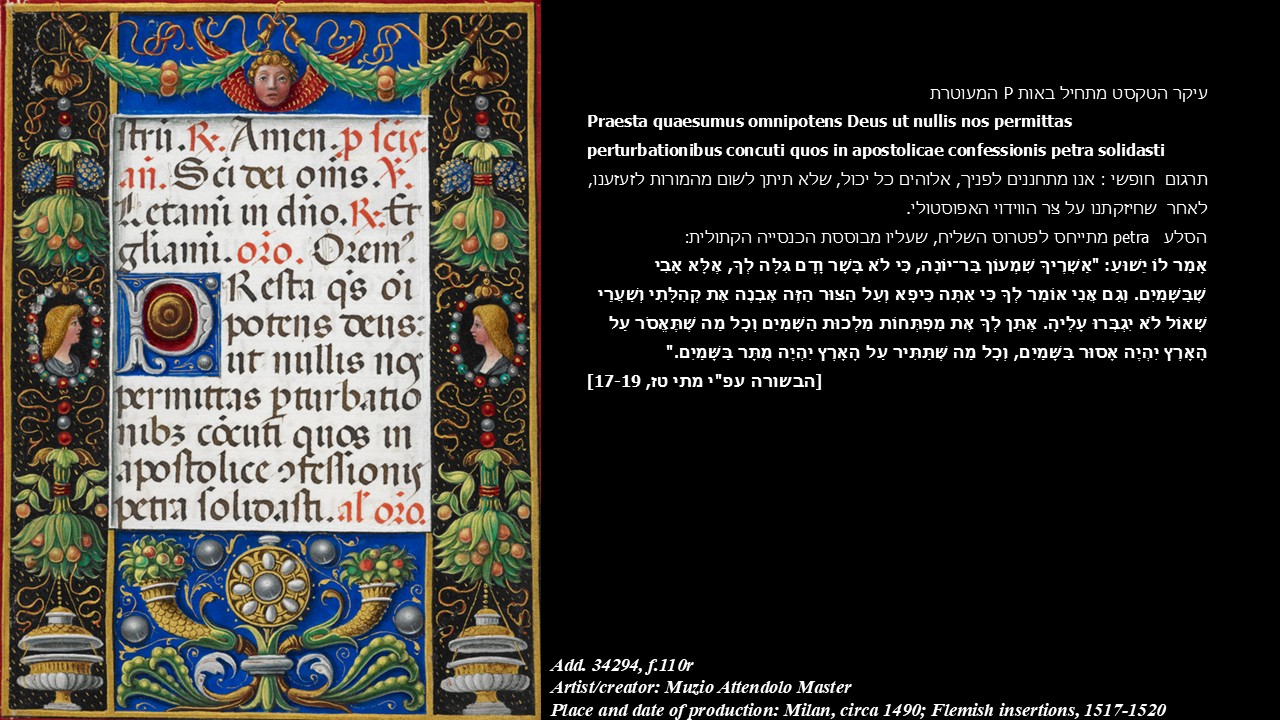 strii. R. Amen. p scis.
añ. Sci dei oms. V.
Letami in dño. R. Et
gliami. oro. Orem?
PResta qs oi
potens deus:
ut nullis nos
permittas pturbatio
nibz cõcuti quos in
apostolice ɔfessionis
petra solidasti. al' oro.
עיקר הטקסט מתחיל באות P המעוטרת
Praesta quaesumus omnipotens Deus ut nullis nos permittas
perturbationibus concuti quos in apostolicae confessionis petra solidasti
תרגום חופשי : אנו מתחננים לפניך, אלוהים כל יכול, שלא תיתן לשום מהמורות לזעזענו,
לאחר שחיזקתנו על צר הווידוי האפוסטולי.
הסלע petra מתייחס לפטרוס השליח, שעליו מבוססת הכנסייה הקתולית:
אָמַר לוֹ יֵשׁוּעַ: "אַשְׁרֶיךָ שִׁמְעוֹן בַּר־יוֹנָה, כִּי לֹא בָּשָׂר וָדָם גִּלָּה לְךָ, אֶלָּא אָבִי
שֶׁבַּשָּׁמַיִם. וְגַם אֲנִי אוֹמֵר לְךָ כִּי אַתָּה כֵּיפָא וְעַל הַצּוּר הַזֶּה אֶבְנֶה אֶת קְהִלָּתִי וְשַׁעֲרֵי
שְׁאוֹל לֹא יִגְבְּרוּ עָלֶיהָ. אֶתֵּן לְךָ אֶת מַפְתְּחוֹת מַלְכוּת הַשָּׁמַיִם וְכָל מַה שֶּׁתֶּאֱסֹר עַל
הָאָרֶץ יִהְיֶה אָסוּר בַּשָּׁמַיִם, וְכָל מַה שֶּׁתַּתִּיר עַל הָאָרֶץ יִהְיֶה מֻתָּר בַּשָּׁמַיִם."
[הבשורה עפ"י מתי טז, 17-19]
Add. 34294, f.110r
Artist/creator: Muzio Attendolo Master
Place and date of production: Milan, circa 1490; Flemish insertions, 1517-1520